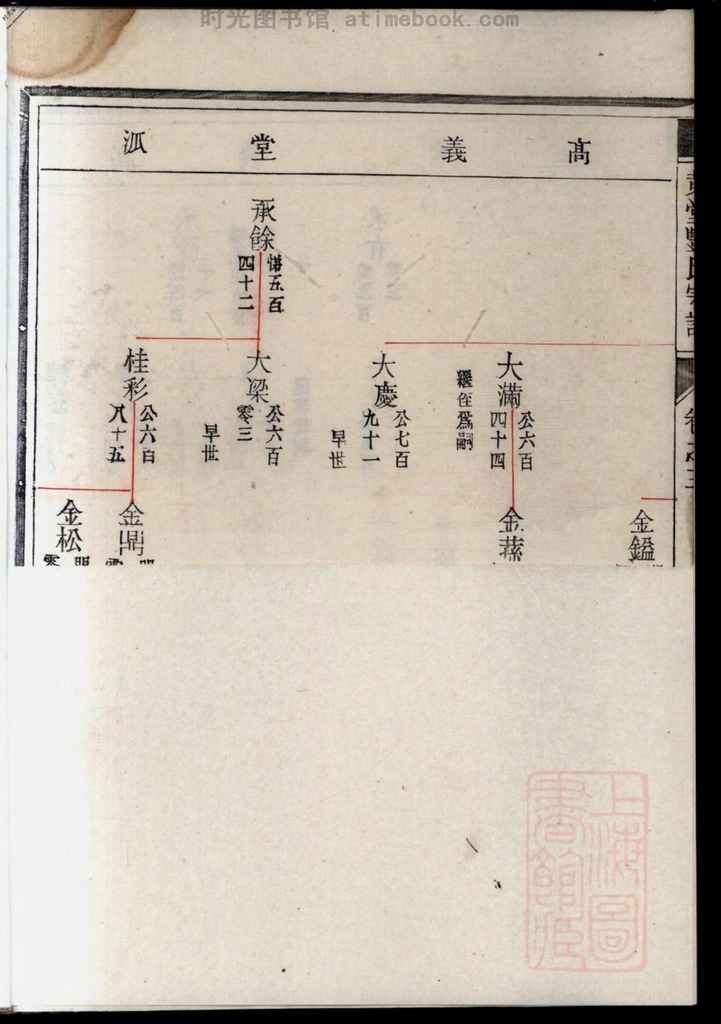 时光图书馆 atimebook.com
高義堂派
承餘
悌五百
四十二
大滿
公六百
四十四
繼侄爲嗣
大慶
公七百
九十一
早世
大梁
公六百
零三
早世
桂彩
公六百
八十五
金鎰
金蓀
金鼎
金松
上海圖
書館臧